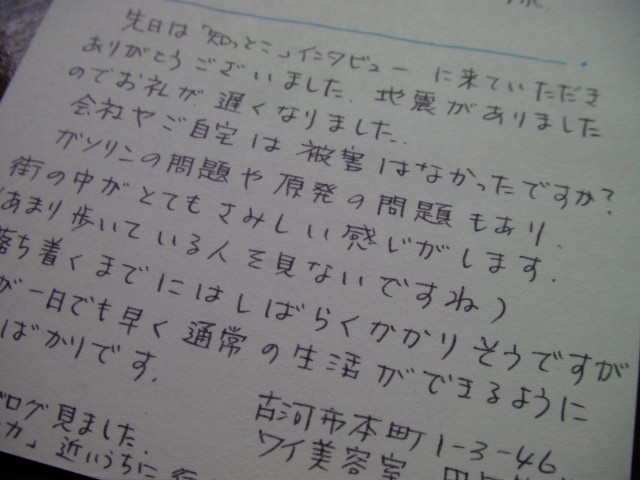 先日は「知っとこ」インタビューに来ていただき
ありがとうございました. 地震がありました
のでお礼が遅くなりました.
会社やご自宅は被害はなかったですか?
ガソリンの問題や原発の問題もあり.
街の中がとてもさみしい感じがします.
(あまり歩いている人を見ないですね)
落ち着くまでにはしばらくかかりそうですが
が一日でも早く通常の生活ができるように
ばかりです.
ブログ見ました.
カ」近いうちに行
古河市本町1-3-46
ワイ美容室